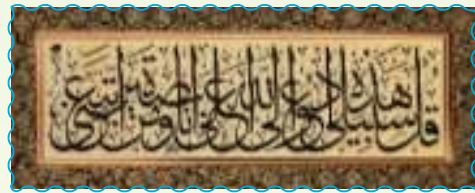 قل هذه سبيلي ادعوا الى الله على بصيرة انا ومن اتبعني